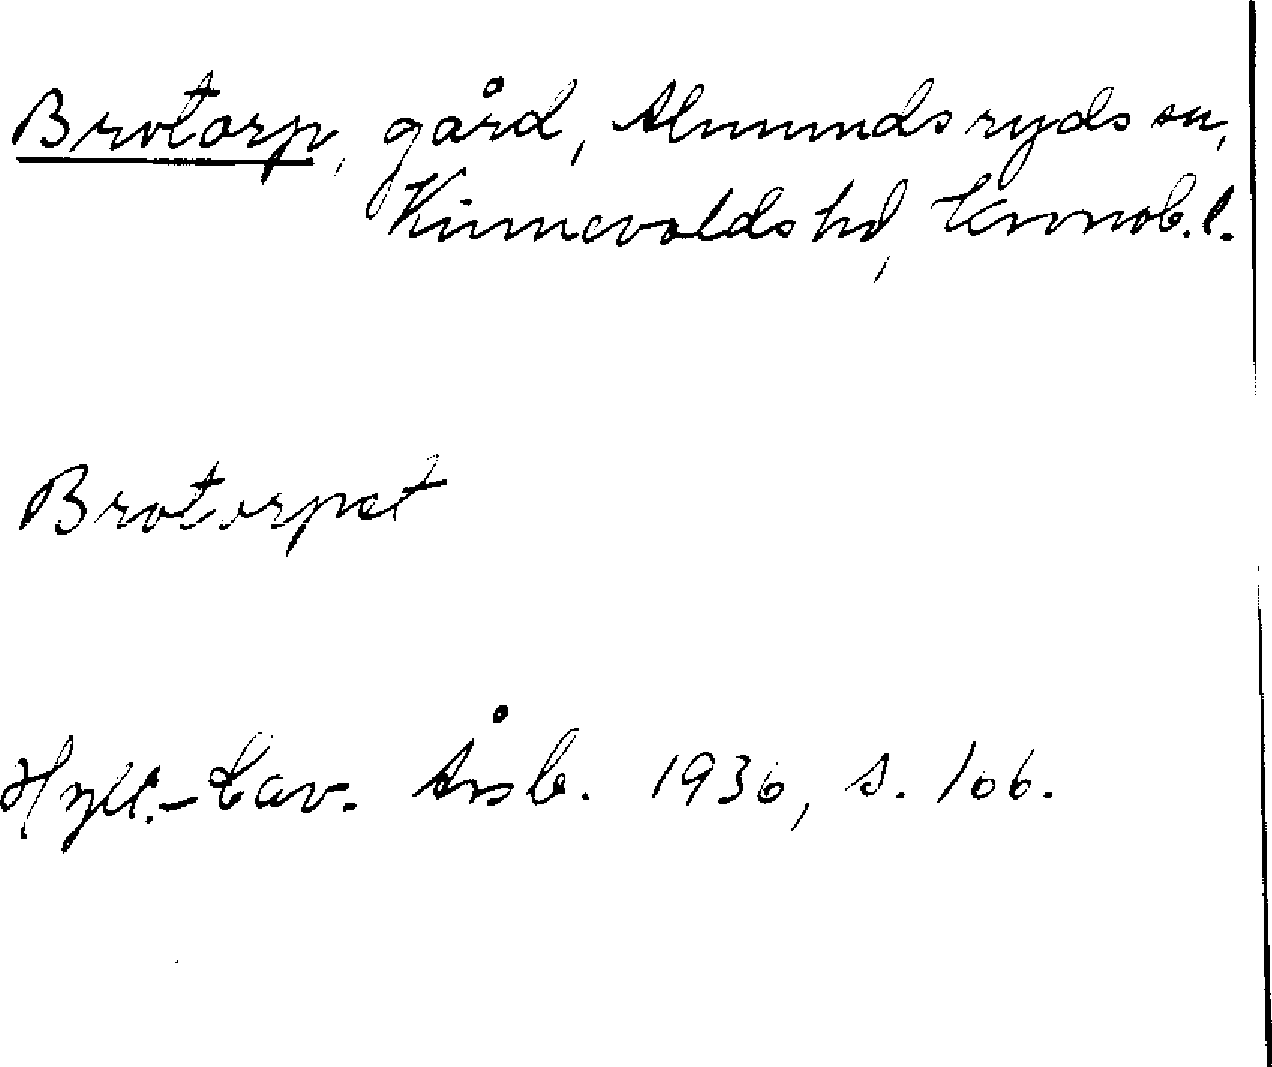 Brotorp, gård, Almundsryds sn,
Kinnevalds hd, Kronob. l.
Brotorpet
Hylt.-Cav. Årsb. 1936, s. 106.